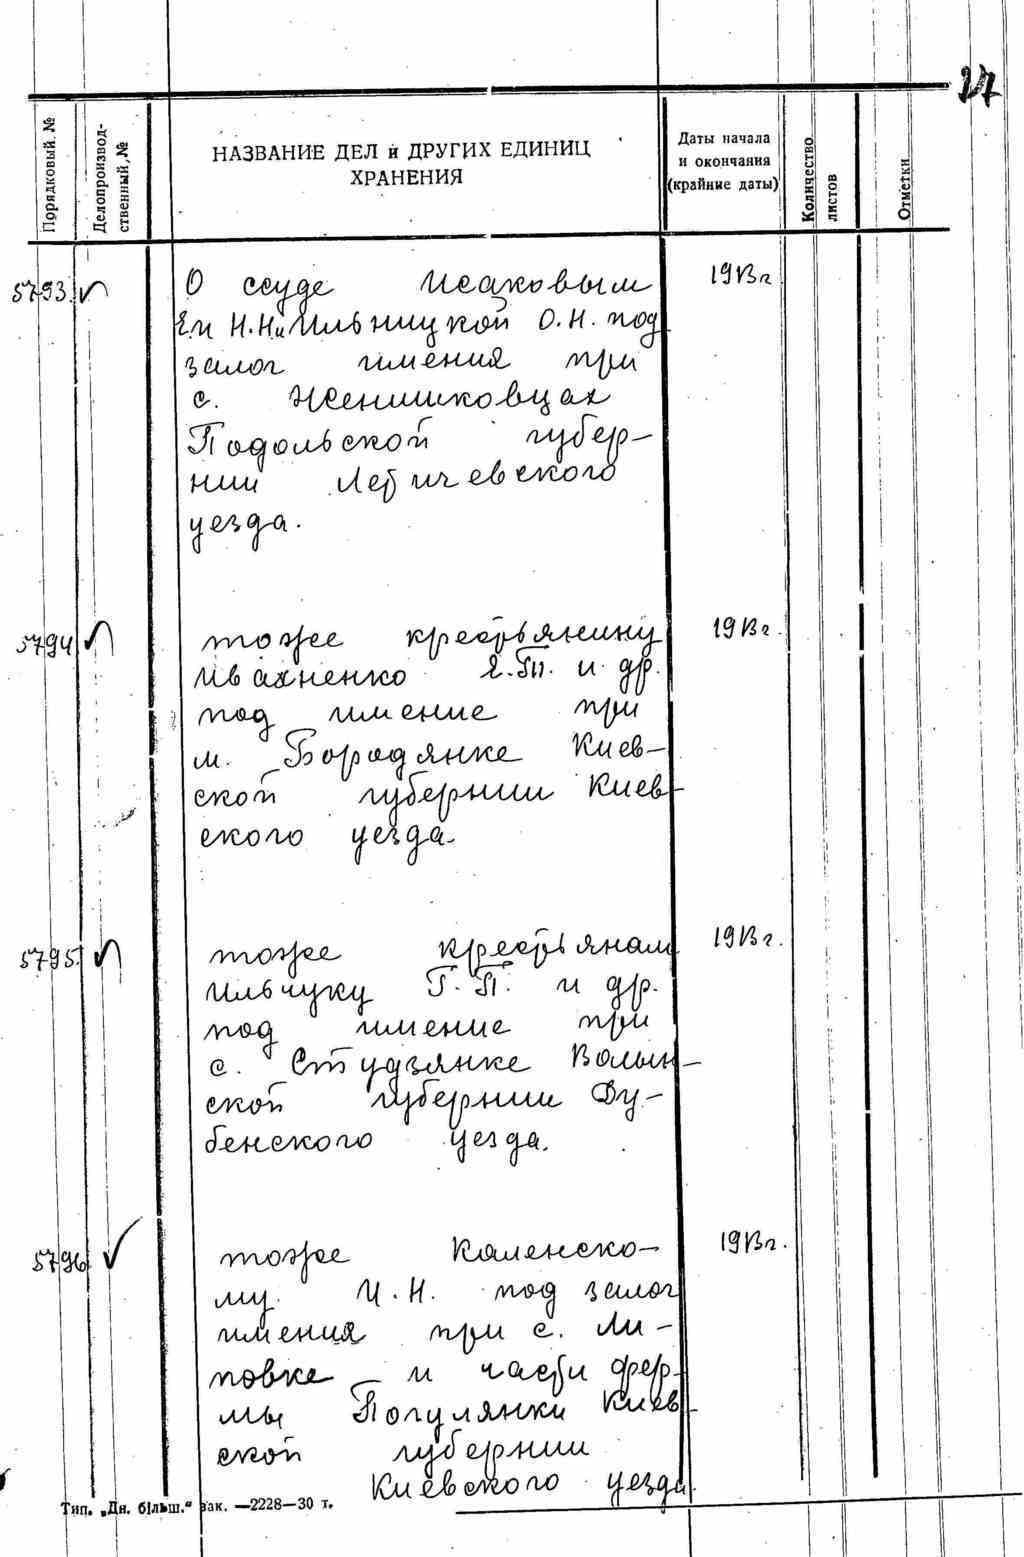 27
Порядковый №
Делопроизвод-
ственный №
НАЗВАНИЕ ДЕЛ и ДРУГИХ ЕДИНИЦ
ХРАНЕНИЯ
Даты начала
и окончания
(крайние даты)
Количество
листов
Отметки
5793. О ссуде Исаковым 1913 г.
Н.Н. и Ильницкой О.Н. под
залог имения при
с. Женишковцах
Подольской губер-
нии Летичевского
уезда.
5794 тоже крестьянину 1913 г.
Ивахненко Я.П. и др.
под имение при
м. Бородянке Киев-
ской губернии Киев-
ского уезда.
5795. тоже крестьянам 1913 г.
Ильчуку Г.П. и др.
под имение при
с. Студзянке Волын-
ской губернии Ду-
бенского уезда.
5796. тоже Каленско- 1913 г.
му И.Н. под залог
имения при с. Ли-
повке и части фер-
мы Погулянки Киев-
ской губернии
Киевского уезда.
Тип. „Дн. більш." зак. —2228—30 т.